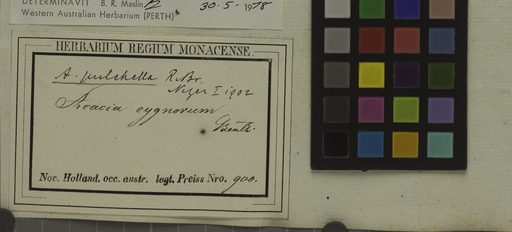 DETERMINAVIT B. R. Maslin 30.5.1978
Western Australian Herbarium (PERTH)
HERBARIUM REGIUM MONACENSE.
A. pulchella R.Br.
I 1902
Acacia cygnorum
Benth.
Nov. Holland. occ. austr. legt. Preiss Nro. 900.